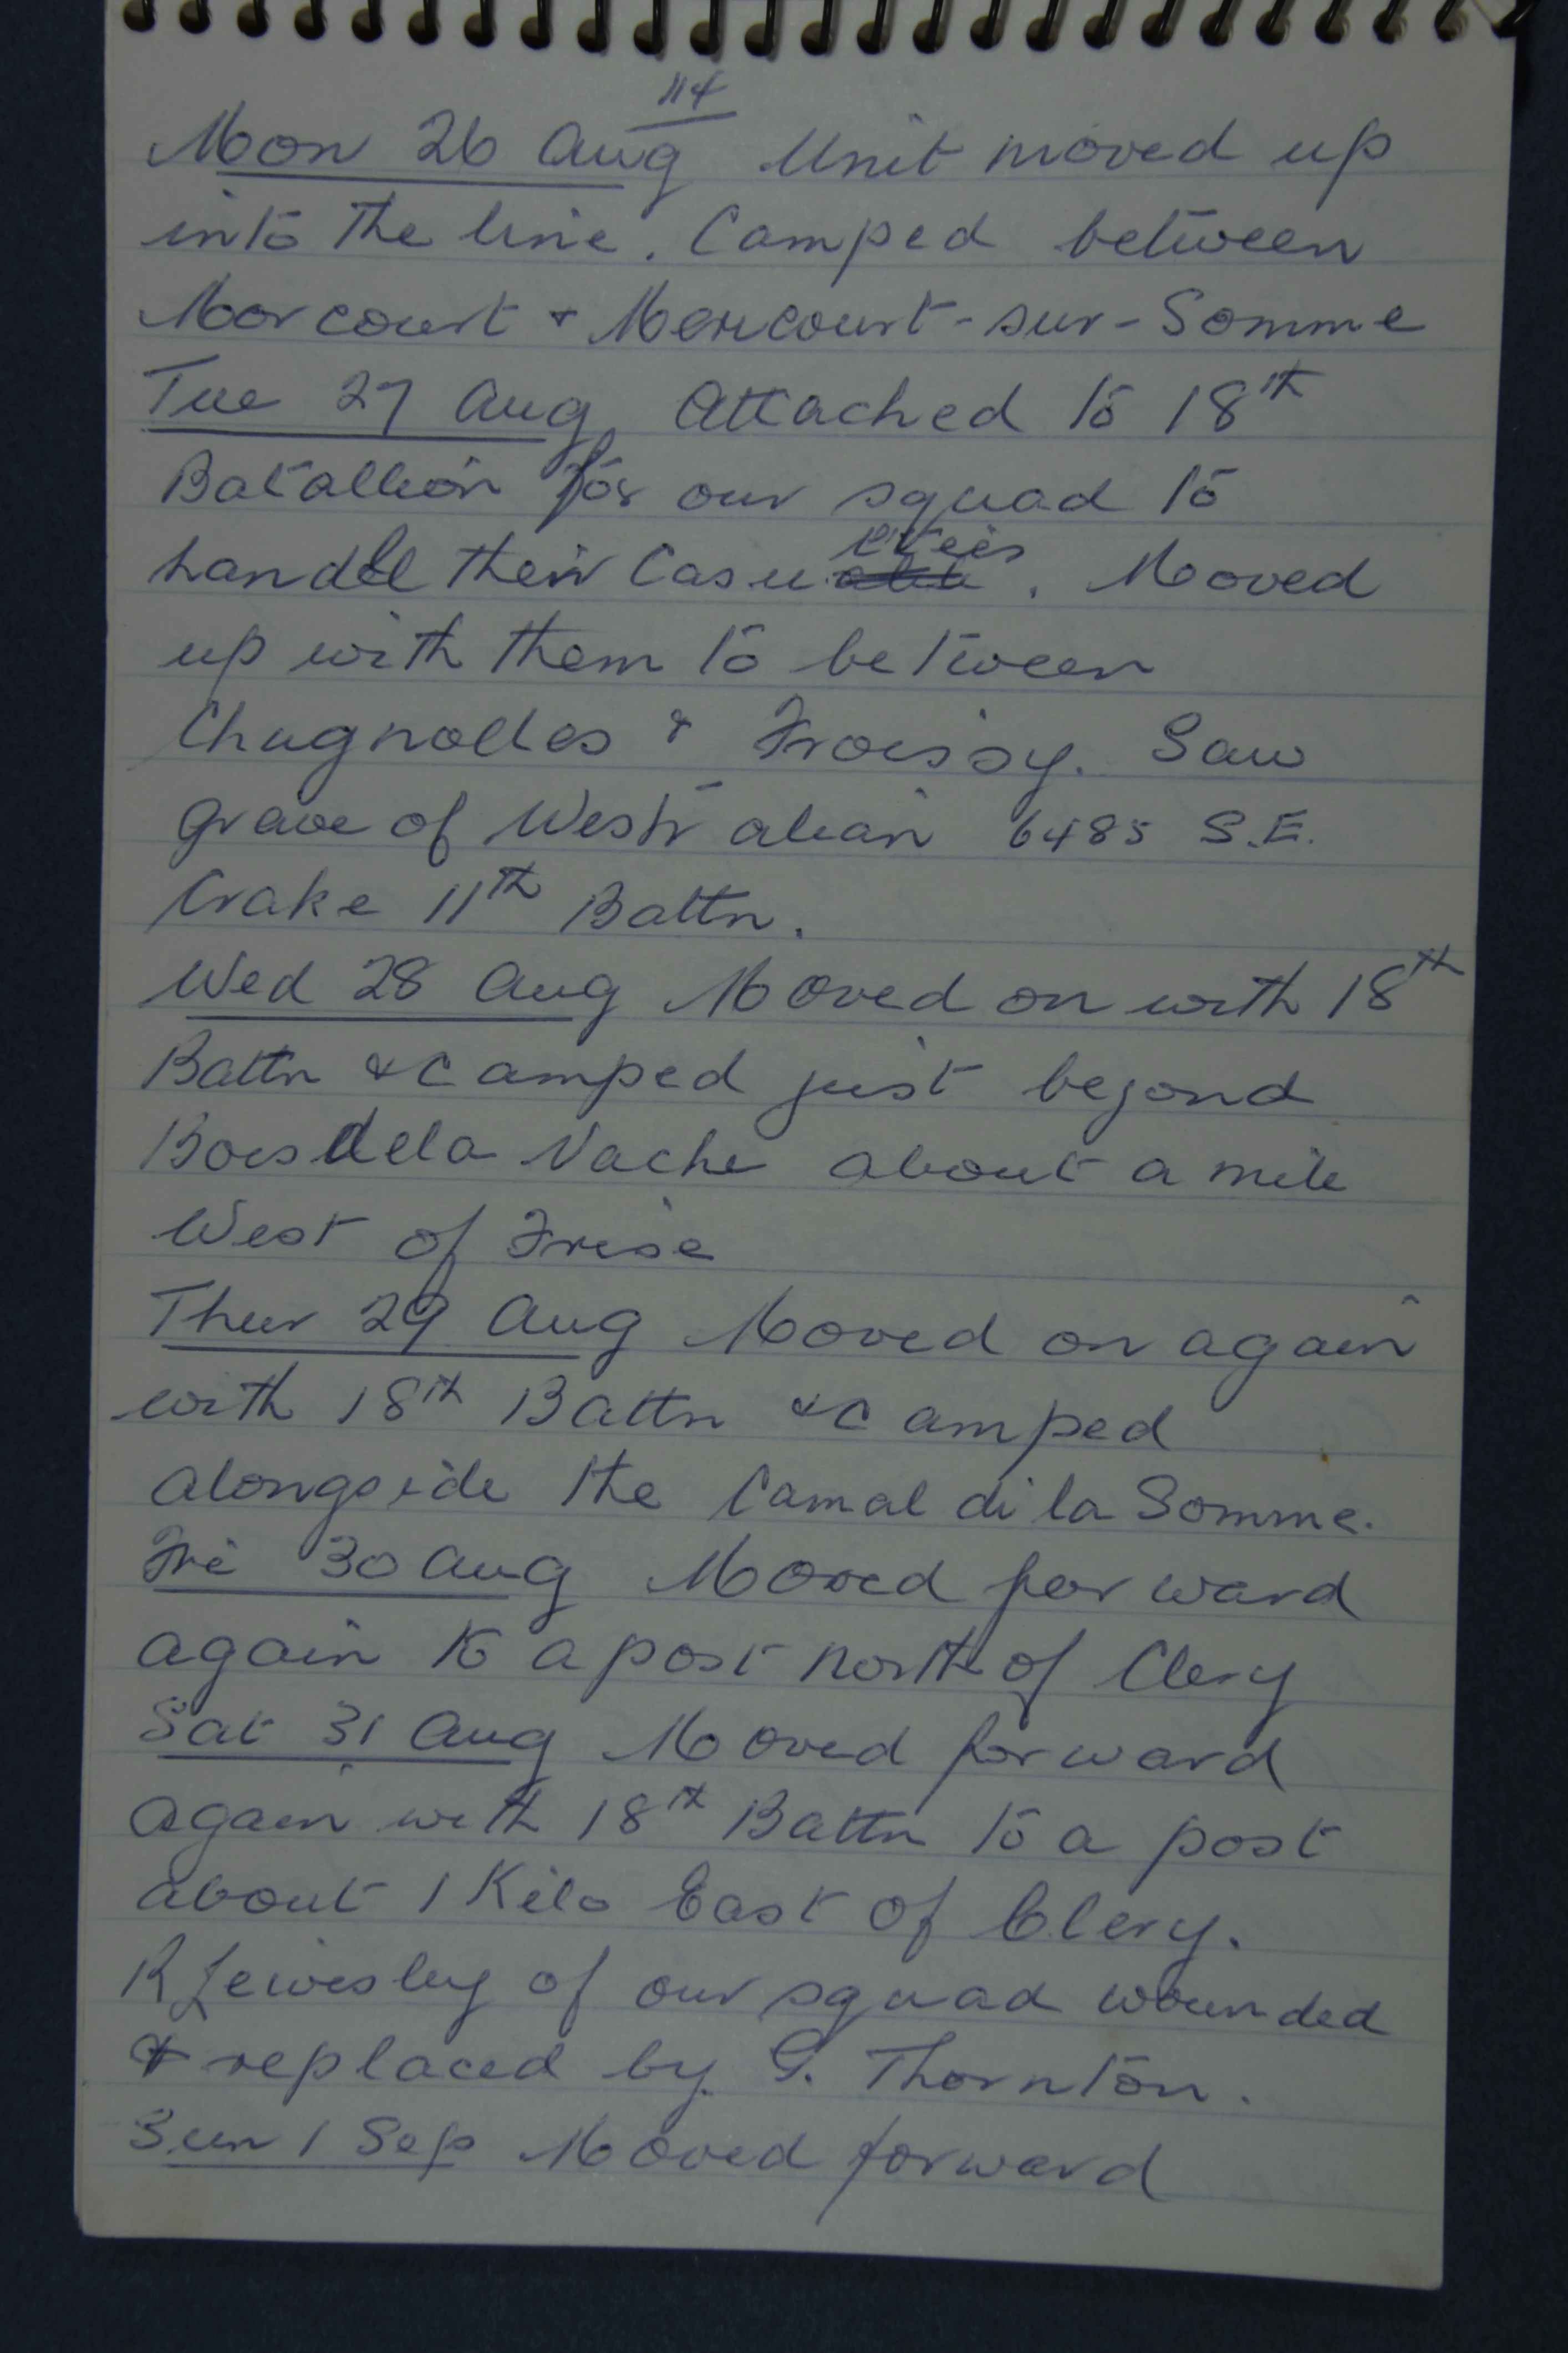 114
Mon 26 Aug Unit moved up
into the line. Camped between
Morcourt & Mericourt-sur-Somme
Tue 27 Aug Attached to 18th
Batallion for our squad to
handle their Casu
up with them to between
Chugnolles & Froissy. Saw
grave of Westralian 6485 S.E.
Crake 11th Battn.
Wed 28 Aug Moved on with 18th
Battn & camped just beyond
Bois de la Vache about a mile
West of Frise
Thur 29 Aug Moved on again
with 18th Battn & camped
alongside the Camal di la Somme.
Fri 30 Aug Moved forward
again to a post north of Clery
Sat 31 Aug Moved forward
again with 18th Battn to a post
about 1 Kilo East of Clery.
R Lewisley of our squad wounded
& replaced by G. Thornton.
Sun 1 Sep Moved forward